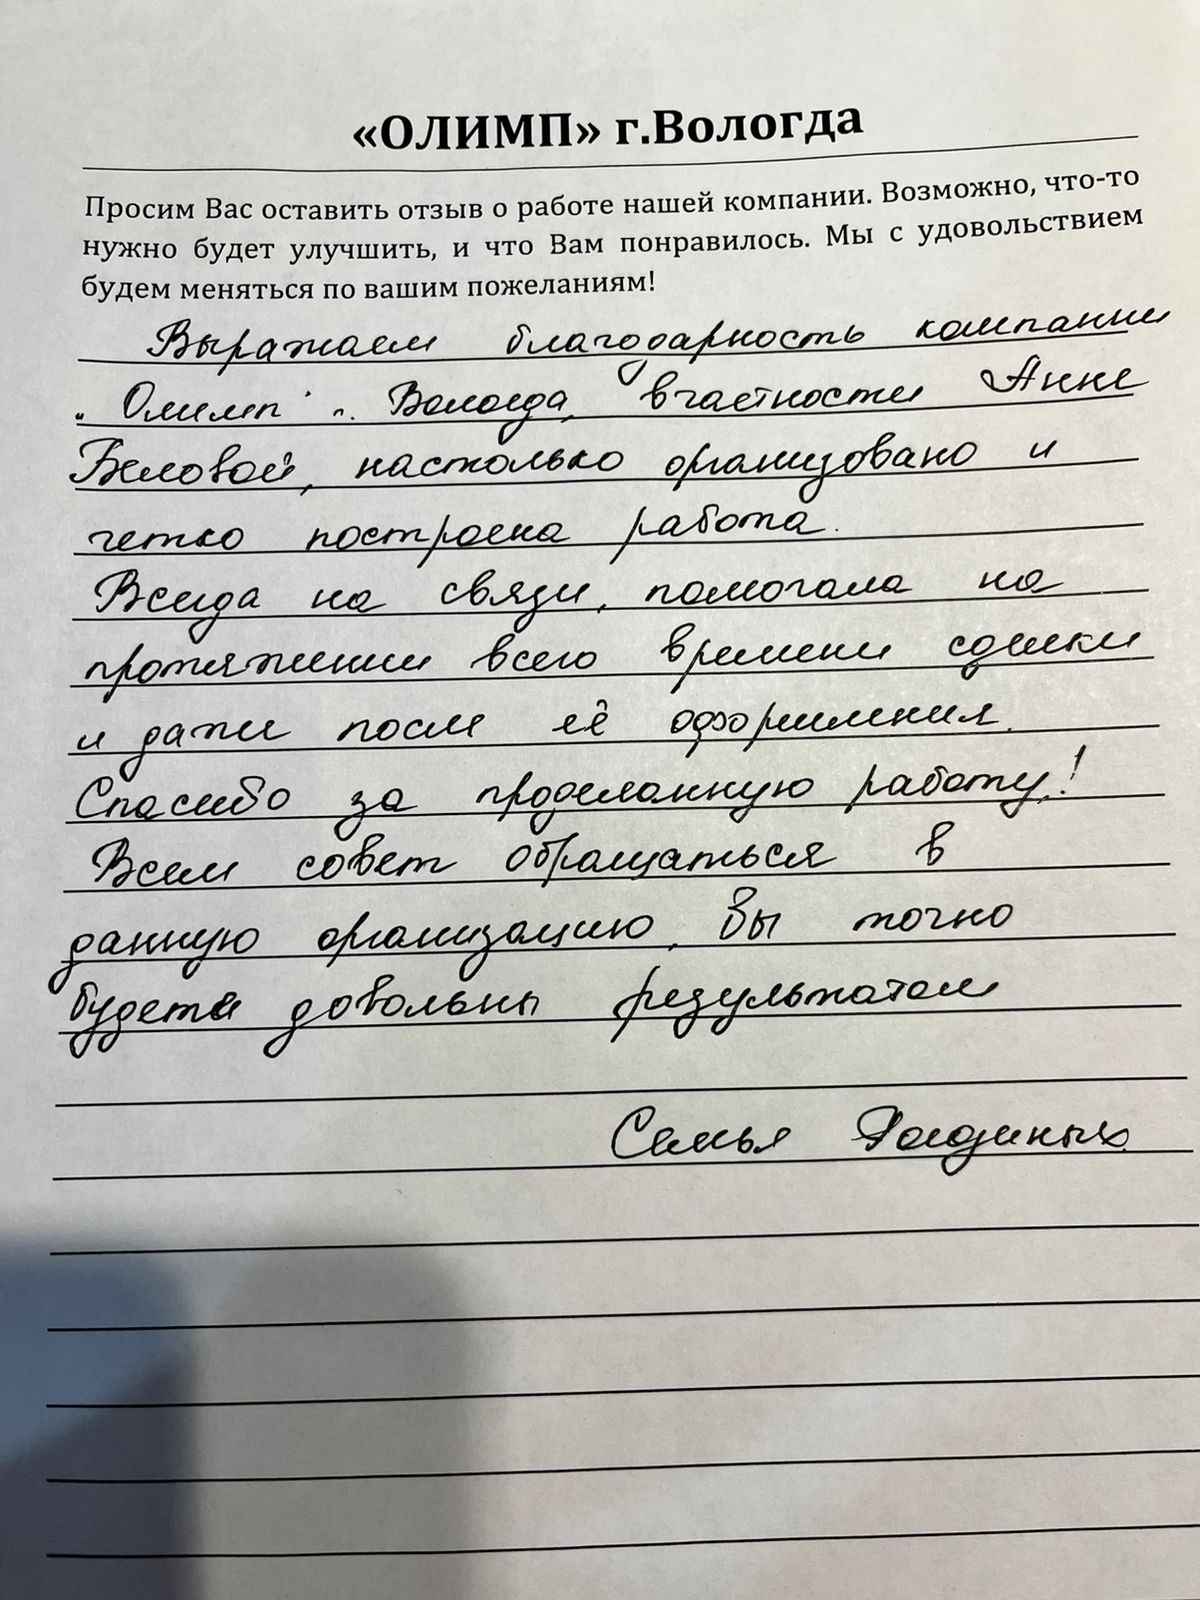 «ОЛИМП» г.Вологда
Просим Вас оставить отзыв о работе нашей компании. Возможно, что-то
нужно будет улучшить, и что Вам понравилось. Мы с удовольствием
будем меняться по вашим пожеланиям!
Выражаем благодарность компании
„Олимп" г. Вологда, в частности Анне
Беловой, настолько организовано и
четко построена работа.
Всегда на связи, помогала на
протяжении всего времени сделки
и даже после её оформления.
Спасибо за проделанную работу!
Всем совет обращаться в
данную организацию, Вы точно
будете довольны результатом
Семья